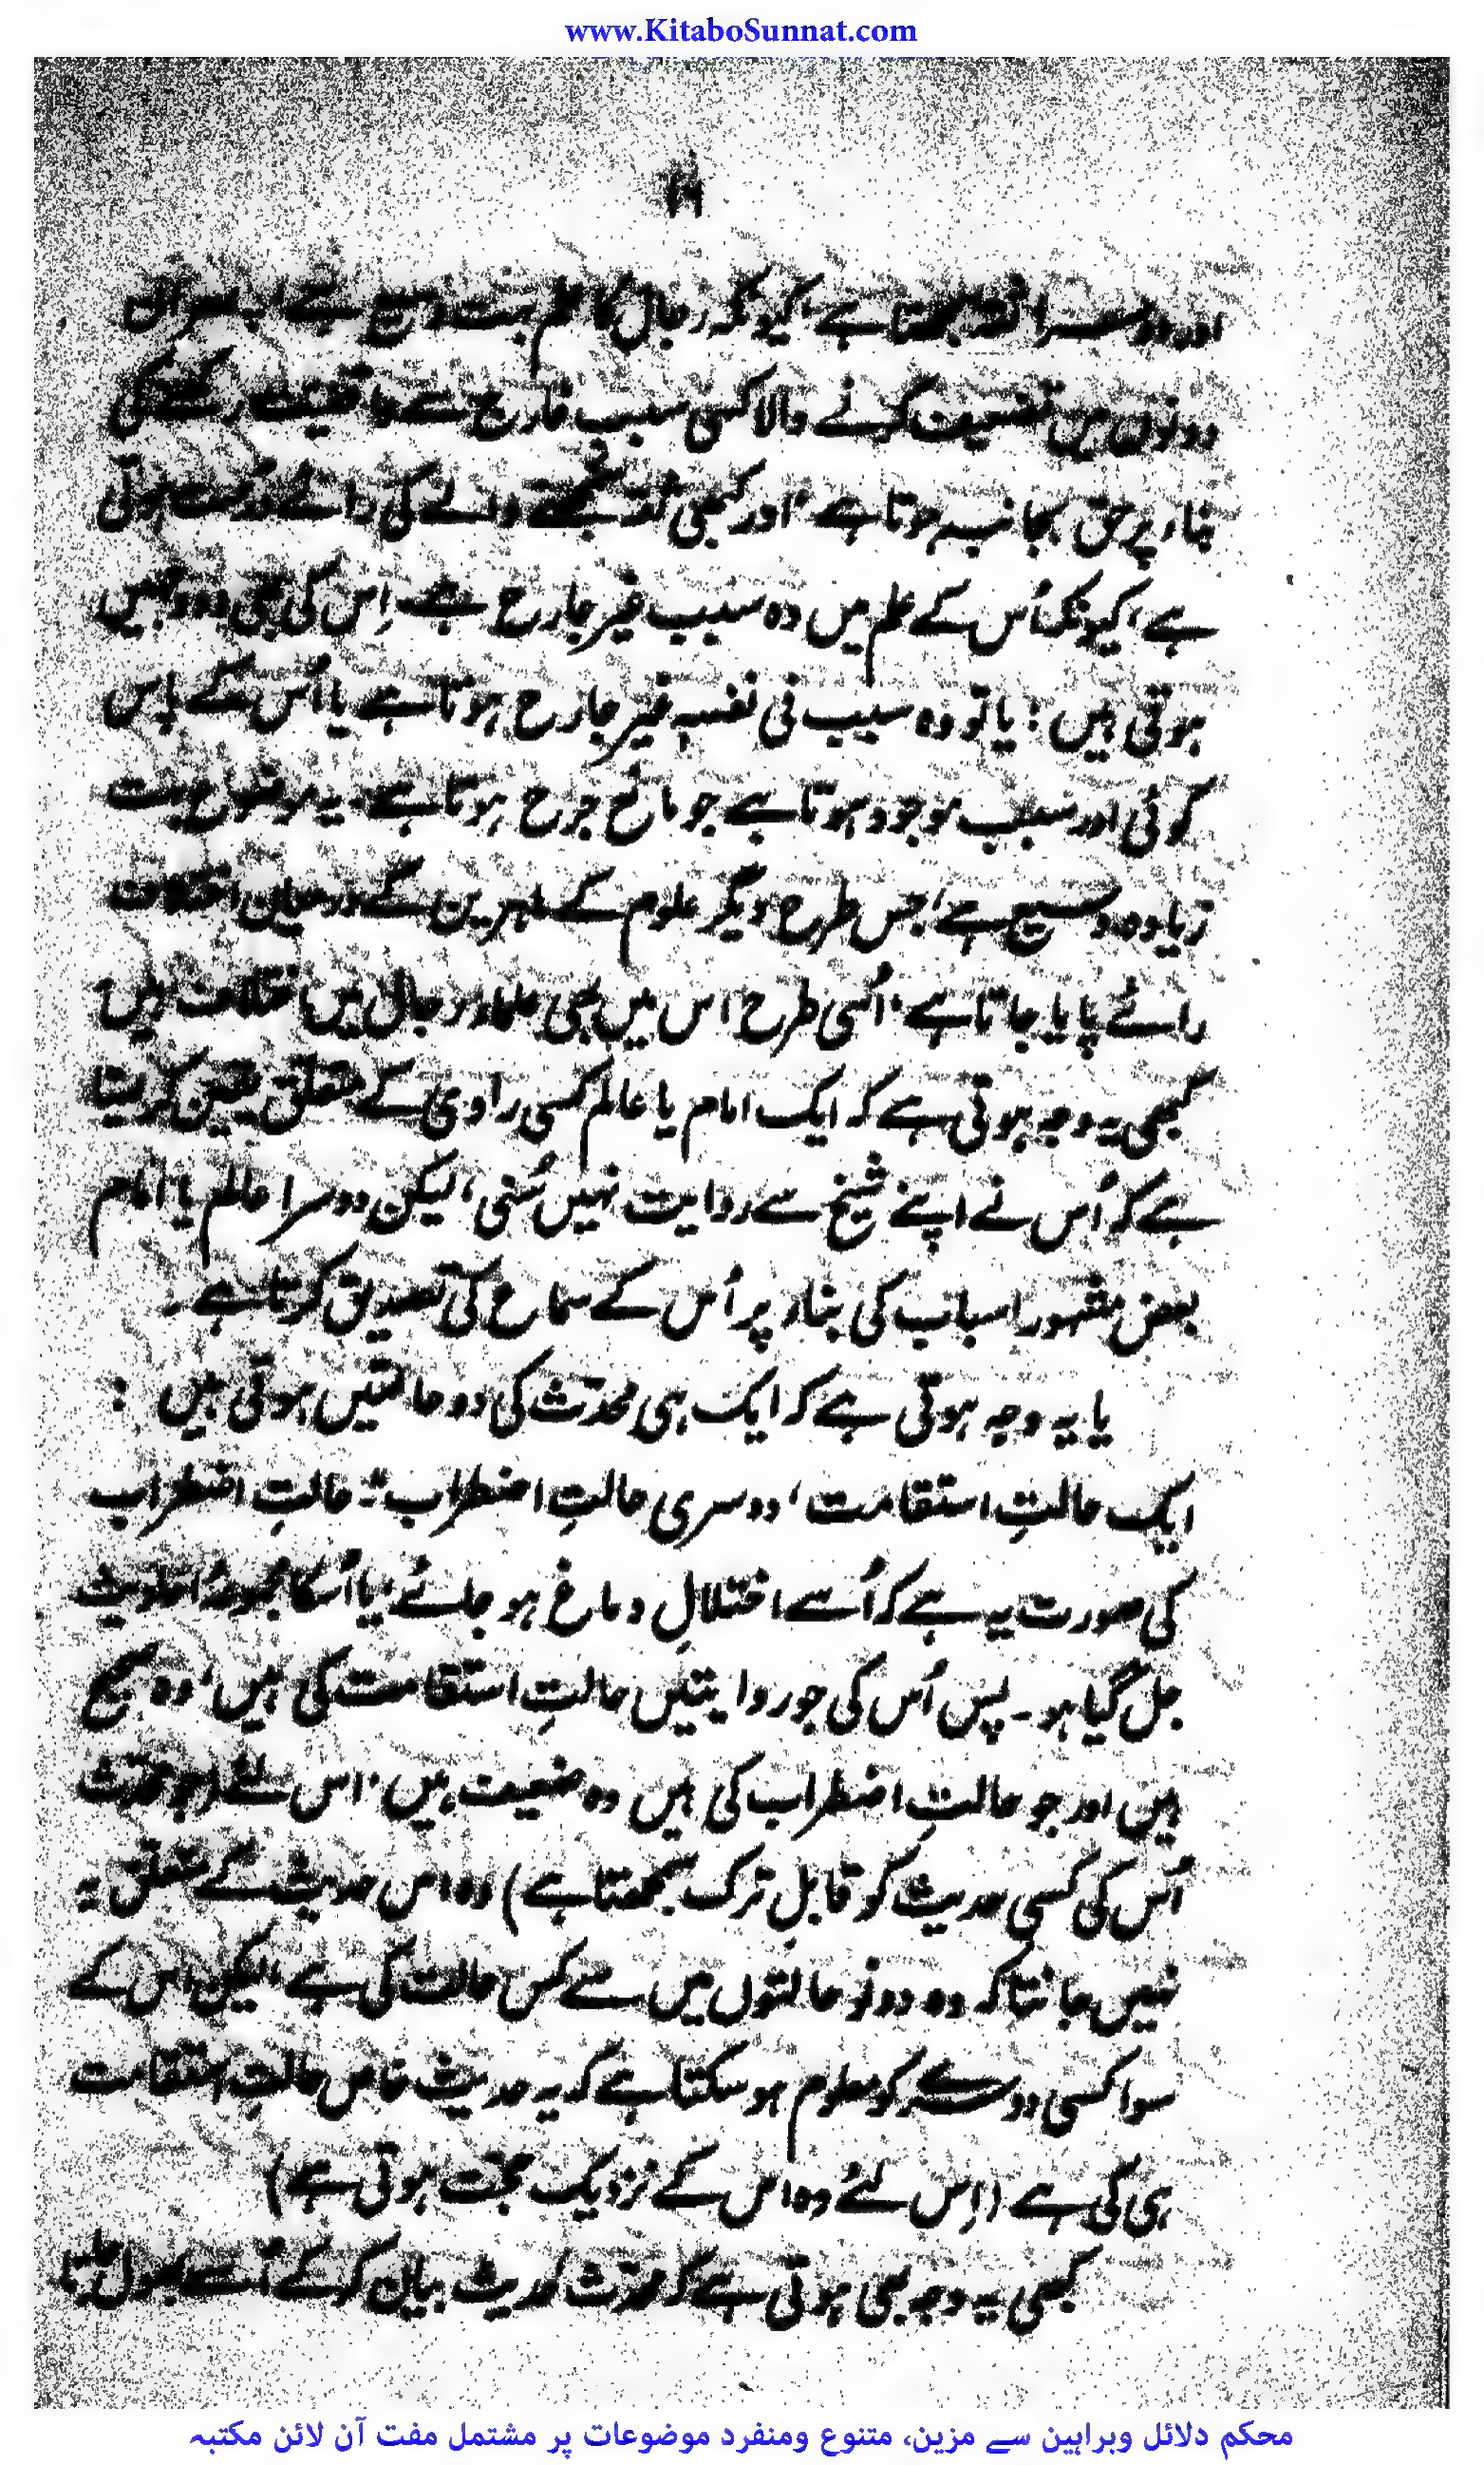 www.KitaboSunnat.com
اور دوسرا ثقہ سمجھتا ہے، کیونکہ رجال کا علم بہت وسیع ہے، پھر ان
دونوں میں تضعیف کرنے والا کسی سبب قادح سے واقفیت رکھنے کی
بناء پر حق بجانب ہوتا ہے، اور کبھی ثقہ سمجھنے والے کی رائے درست ہوتی
ہے، کیونکہ اُس کے علم میں وہ سبب غیر جارح ہے۔ اِس کی بھی دو وجہیں
ہوتی ہیں: یا تو وہ سبب فی نفسہٖ غیر جارح ہوتا ہے یا اُس کے پاس
کوئی اور سبب موجود ہوتا ہے جو مانع جرح ہوتا ہے۔ یہ موضوع بہت
زیادہ وسیع ہے، جس طرح دیگر علوم کے ماہرین کے درمیان اختلاف
رائے پایا جاتا ہے، اُسی طرح اس میں بھی علماء رجال میں اختلاف ہیں۔
کبھی یہ وجہ ہوتی ہے کہ ایک امام یا عالم کسی راوی کے متعلق یقین کر لیتا
ہے کہ اُس نے اپنے شیخ سے روایت نہیں سُنی، لیکن دوسرا عالم یا امام
بعض مشہور اسباب کی بناء پر اُس کے سماع کی تصدیق کرتا ہے۔
یا یہ وجہ ہوتی ہے کہ ایک ہی محدّث کی دو حالتیں ہوتی ہیں:
ایک حالتِ استقامت، دوسری حالتِ اضطراب"۔ حالتِ اضطراب
کی صورت یہ ہے کہ اُسے اختلالِ دماغ ہو جائے، یا اُسکا مجموعۂ احادیث
جل گیا ہو۔ پس اُس کی جو روایتیں حالتِ استقامت کی ہیں، وہ صحیح
ہیں اور جو حالتِ اضطراب کی ہیں وہ ضعیف ہیں، اس لئے (جو محدّث
اُس کی کسی حدیث کو قابلِ ترک سمجھتا ہے) وہ اس حدیث کے متعلق یہ
نہیں جانتا کہ وہ دونو حالتوں میں سے کس حالت کی ہے، لیکن اس کے
سوا کسی دوسرے کو معلوم ہو سکتا ہے کہ یہ حدیث خاص حالتِ استقامت
ہی کی ہے (اِس لئے وہ اس کے نزدیک حجّت ہوتی ہے)
کبھی یہ وجہ بھی ہوتی ہے کہ محدّث حدیث بیان کر کے اُسے بھول جاتا
محکم دلائل وبراہین سے مزین، متنوع ومنفرد موضوعات پر مشتمل مفت آن لائن مکتبہ